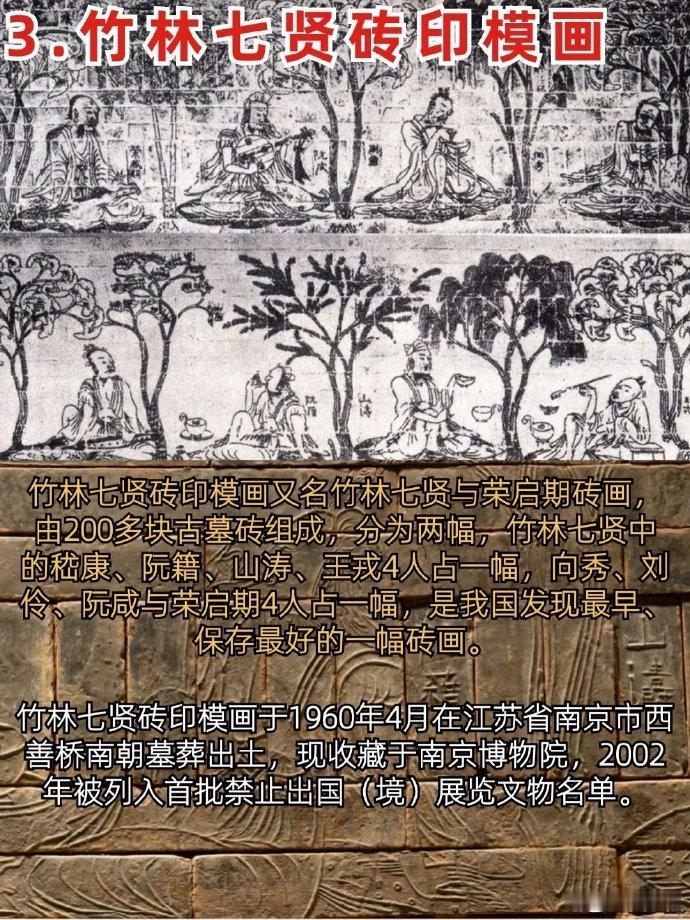 3.竹林七贤砖印模画
阮咸
阮籍
山濤
竹林七贤砖印模画又名竹林七贤与荣启期砖画，
由200多块古墓砖组成，分为两幅，竹林七贤中
的嵇康、阮籍、山涛、王戎4人占一幅，向秀、刘
伶、阮咸与荣启期4人占一幅，是我国发现最早、
保存最好的一幅砖画。
山濤
竹林七贤砖印模画于1960年4月在江苏省南京市西
善桥南朝墓葬出土，现收藏于南京博物院，2002
年被列入首批禁止出国（境）展览文物名单。